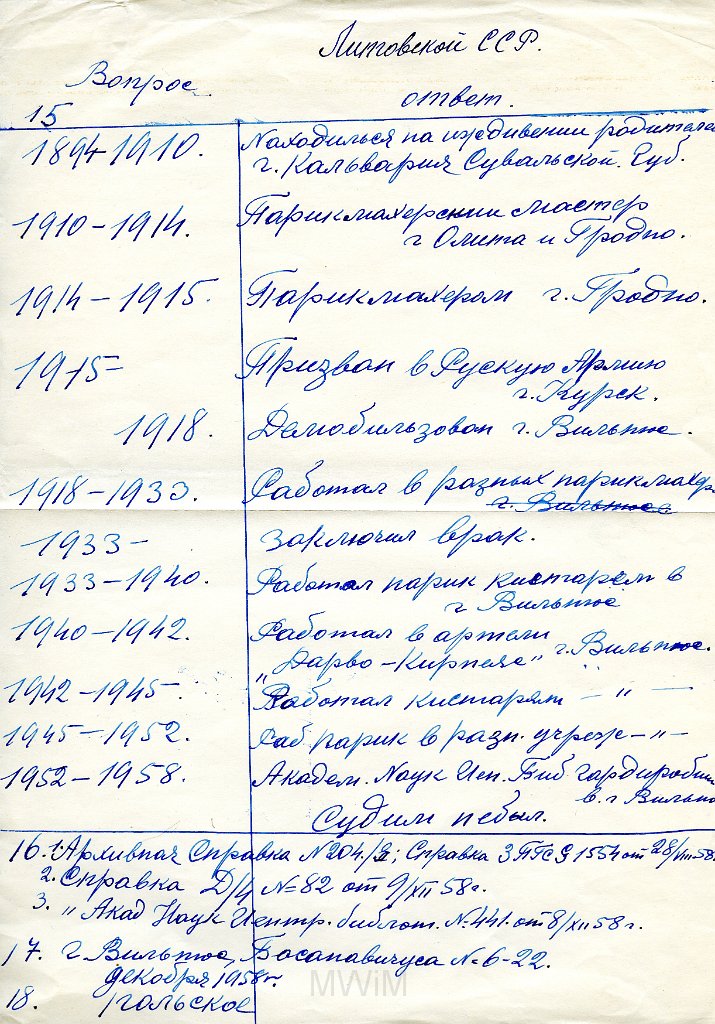 Литовской ССР.
Вопрос
ответ.
15
1894-1910. Находилься на иждивении родителей
г. Кальвария Сувальской. Губ.
1910-1914. Парикмахерский мастер
г Олита и Гродно.
1914-1915. Парикмахером г. Гродно.
1915- Призван в Рускую Армию
г. Курск.
1918. Демобильзован г. Вильнюс.
1918-1933. Работал в разных парикмахер
г. Вильнюсе
1933- Заключил брак.
1933-1940. Работал парик кистарем в
г Вильнюс
1940-1942. Работал в артели
„Дарбо-Кирпеяс" г. Вильнюс.
1942-1945. Работал кистарям - " -
1945-1952. Раб парик в разн. учреж - " -
1952-1958. Академ. Наук Цен. Биб Гардиробщи
в. г Вильню
Судим небыл.
16. 1. Архивная Справка N 204./; Справка 1554 от 28/VIII-58.
2. Справка Д/4 N=82 от 9/XII 58 г.
3. „ Акад Наук Центр. библиот. N. 441. от 8/XII 58 г.
17. г. Вильнюс, Босанавичуса N-6-22.
Декабря 1958 г.
18. польское
MWiM